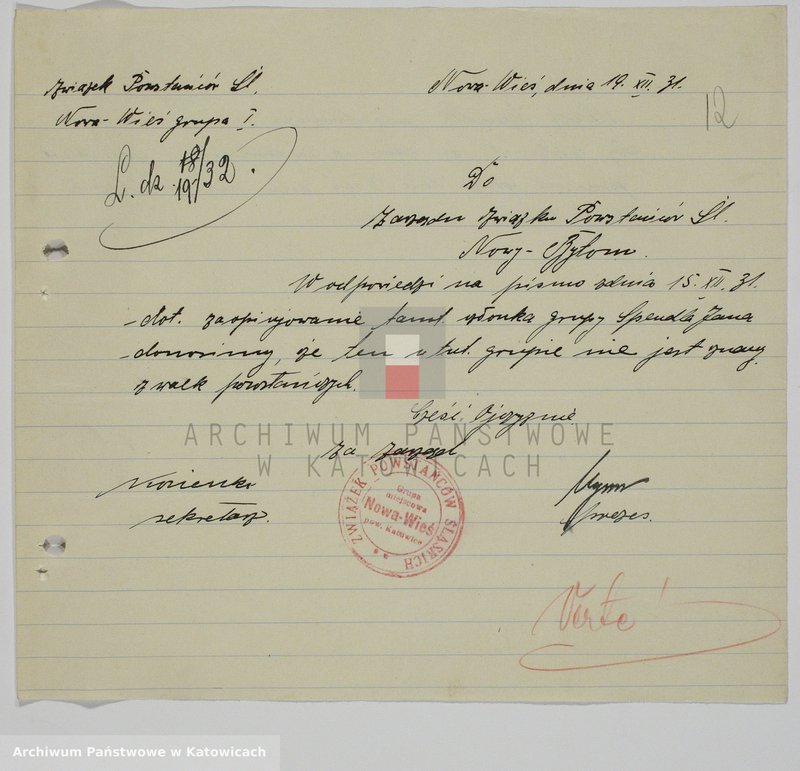 Związek Powstańców Śl.
Nowa-Wieś grupa I.
Nowa-Wieś, dnia 19. XII. 31.
12
L. dz. 18/32.
19
Do
Zarządu Związku Powstańców Śl.
Nowy-Bytom.
W odpowiedzi na pismo zdnia 15. XII. 31.
-dot. zaopinjowanie tamt. członka grupy Spendla Jana
-donosimy, że ten w tut. grupie nie jest znany
z walk powstańczych.
Cześć Ojczyznie
Za Zarząd
sekretarz.
prezes.
ZWIĄZEK POWSTAŃCÓW ŚLĄSKICH
Grupa
miejscowa
Nowa-Wieś
pow. Katowice
Verte!
ARCHIWUM PAŃSTWOWE
W KATOWICACH
Archiwum Państwowe w Katowicach